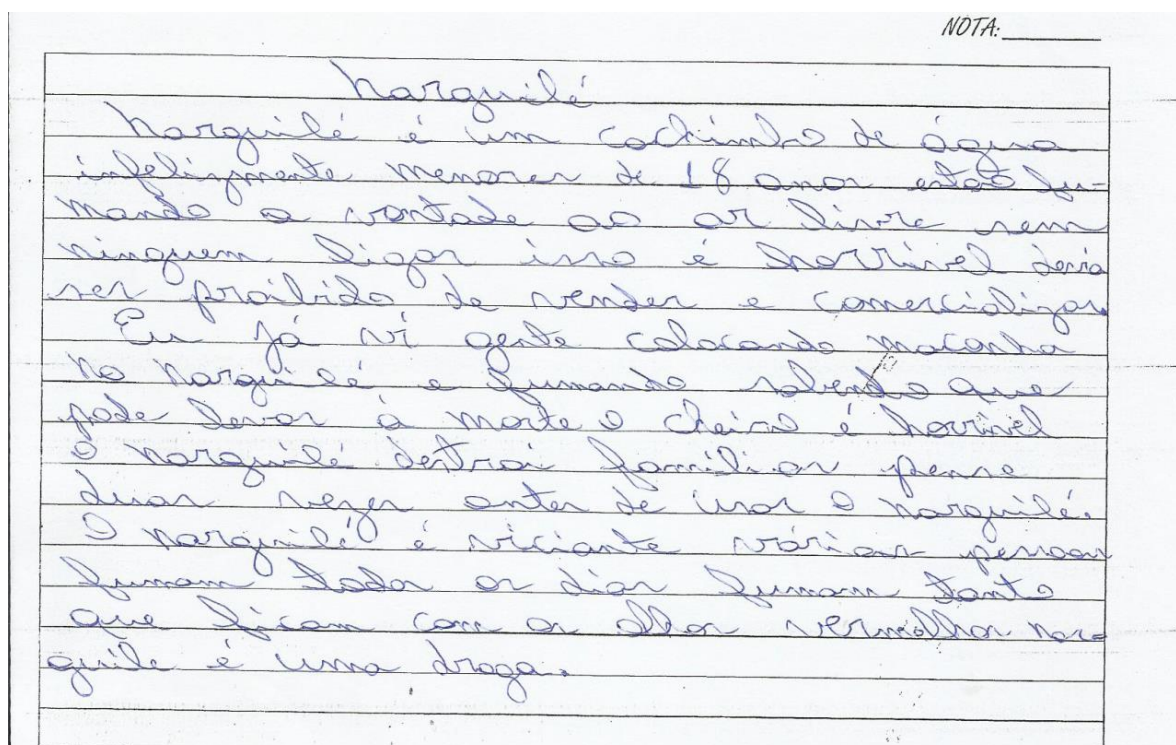 NOTA:
Narguilé
Narguilé é um cachimbo de água
infelizmente menores de 18 anos estão fu-
mando a vontade ao ar livre sem
ninguem ligar isso é horrivel devia
ser proibido de vender e comercializar.
Eu já vi gente colocando maconha
no narguilé e fumando sabendo que
pode levar à morte o cheiro é horrivel
o narguilé destroi familias pense
duas vezes antes de usar o narguilé.
O narguilé é viciante várias pessoas
fumam todos os dias fumam tanto
que ficam com os olhos vermelhos nar-
guile é uma droga.